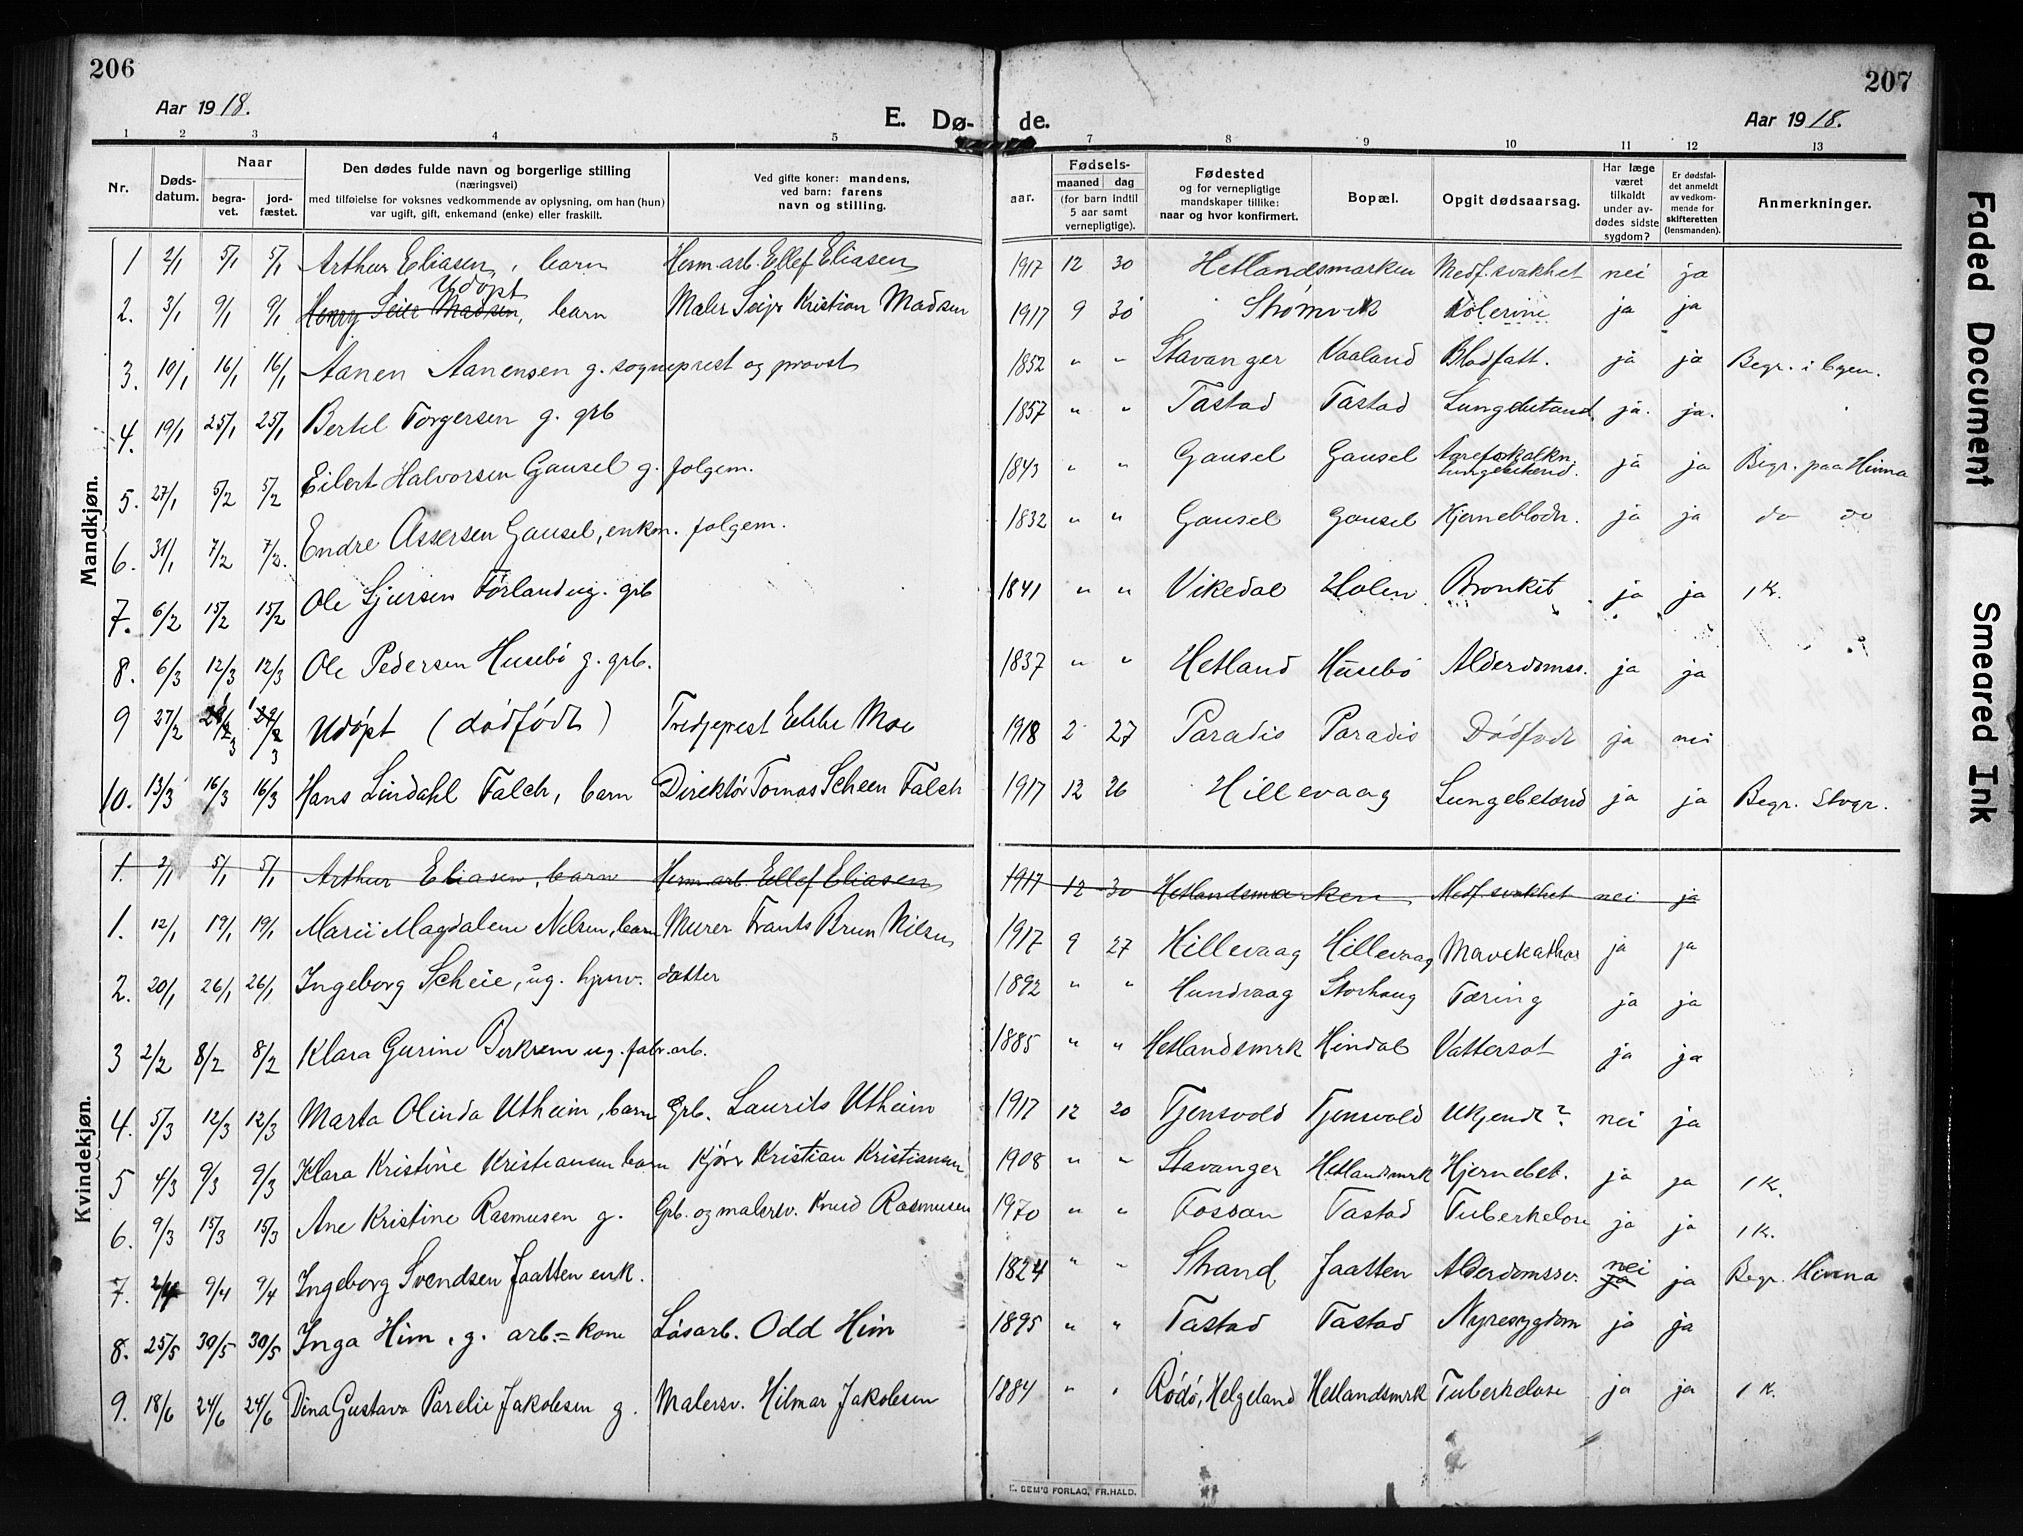 206
207
Aar 1918.
E. Dø-
de.
Aar 1918.
1 2 3 4 5 7 8 9 10 11 12 13
Nr.
Døds-
datum.
Naar
begra-
vet.
jord-
fæstet.
Den dødes fulde navn og borgerlige stilling
(næringsvei)
med tilføielse for voksnes vedkommende av oplysning, om han (hun)
var ugift, gift, enkemand (enke) eller fraskilt.
Ved gifte koner: mandens,
ved barn: farens
navn og stilling.
Fødsels-
aar.
maaned dag
(for barn indtil
5 aar samt
vernepligtige).
Fødested
og for vernepligtige
mandskaper tillike:
naar og hvor konfirmert.
Bopæl.
Opgit dødsaarsag.
Har læge
været
tilkaldt
under av-
dødes sidste
sygdom?
Er dødsfal-
det anmeldt
av vedkom-
mende for
skifteretten
(lensmanden).
Anmerkninger.
Mandkjøn.
1 2/1 5/1 5/1 Arthur Eliasen, barn Herm.arb. Ellef Eliasen 1917 12 30 Hetlandsmarken Medf. svakhet nei ja
Udøpt
2. 3/1 9/1 9/1 Henry Seier Madsen, barn Maler Kristian Madsen 1917 9 30 Strømvik Kolerine ja ja
3. 10/1 16/1 16/1 Aanen Aanensen g. sogneprest og provst 1852 " " Stavanger Vaaland Blodfatt. ja ja Begr. i byen.
4. 19/1 25/1 25/1 Bertel Torgersen g. grb 1857 " " Tastad Tastad Lungebetænd. ja. ja.
5. 27/1 5/2 5/2 Eilert Halvorsen Gausel g. folgem. 1843 " " Gausel Gausel Aareforkalkn. Lungebetænd. ja ja Begr. paa Hinna
6. 31/1 7/2 7/2. Endre Assersen Gausel, enkm. folgem. 1832 " " Gausel Gausel Hjerneblodn. ja ja do do
7. 6/2 15/2 15/2 Ole Sjursen Førland ug. grb 1841 " " Vikedal Holen Bronkit ja ja 1 K.
8. 6/3 12/3 12/3 Ole Pedersen Husebö g. grb. 1837 " " Hetland Husebö Alderdomss. ja ja
9 27/2 1/3 1/3 Udöpt (dödfödt) Tredjeprest Ebbe Moe 1918 2 27 Paradis Paradis Dödfödt ja nei
10. 13/3 16/3 16/3 Hans Lindahl Falch, barn Direktör Tomas Scheen Falch 1917 12 26 Hillevaag Lungebetænd ja ja Begr. Stvgr.
Kvindekjøn.
1. 2/1 5/1 5/1 Arthur Eliasen, barn Herm.arb. Ellef Eliasen 1917 12 30 Hetlandsmarken Medf. svakhet nei ja
1. 12/1 19/1 19/1 Marie Magdalene Nilsen, barn Murer Frants Brun Nilsen 1917 9 27 Hillevaag Hillevaag Mavekathar ja ja
2. 20/1 26/1 26/1 Ingeborg Scheie, ug. hjemv. datter 1892 " " Hundvaag Storhaug Tæring ja ja
3 2/2 8/2 8/2 Klara Gurine Berkrem ug. fabr.arb. 1885 " " Hetlandsmrk Hindal Vattersot ja ja
4. 5/3 12/3 12/3 Marta Olinda Utheim, barn Grb. Laurits Utheim 1917 12 20 Tjensvold Tjensvold Ukjendt? nei ja
5 4/3 9/3 9/3 Klara Kristine Kristiansen barn Kjörer Kristian Kristiansen 1908 " " Stavanger Hetlandsmrk Hjernebet. ja ja 1 K.
6. 9/3 15/3 15/3 Ane Kristine Rasmusen g. Grb. og malersv. Knud Rasmusen 1970 " " Fossan Tastad Tuberkelose ja ja 1 K.
7. 2/4 9/4 9/4 Ingeborg Svendsen Jaatten enk. 1824 " " Strand Jaatten Alderdomssv. nei ja ja Begr. Hinna
8. 25/5 30/5 30/5 Inga Him, g. arb.= kone Lösarb. Odd Him 1895 " " Tastad Tastad Nyresygdom ja ja
9. 18/6 24/6 24/6 Dina Gustava Parelie Jakobsen g. Malersv. Hilmar Jakobsen 1884 " " Rödö, Helgeland Hetlandsmrk Tuberkelose ja ja 1 K.
E. SEM'S FORLAG, FR.HALD.
Faded Document
Smeared Ink